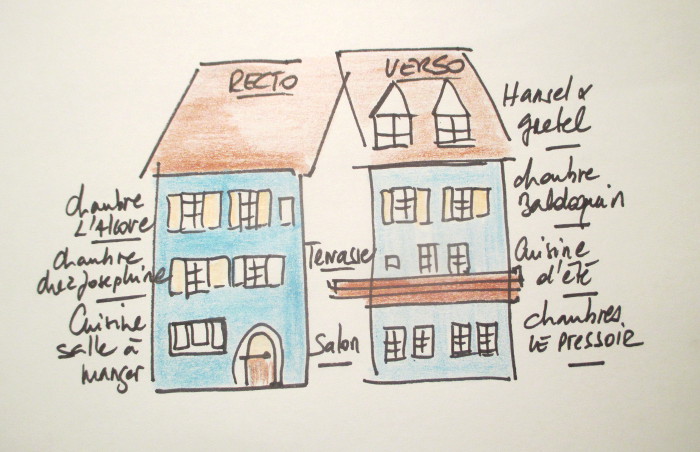 RECTO
VERSO
chambre
L'Alcove
chambre
chez Josephine
Cuisine
salle à
manger
Terrasse
Salon
Hansel &
gretel
chambre
Baldaquin
Cuisine
d'été
chambres
LE PRESSOIR